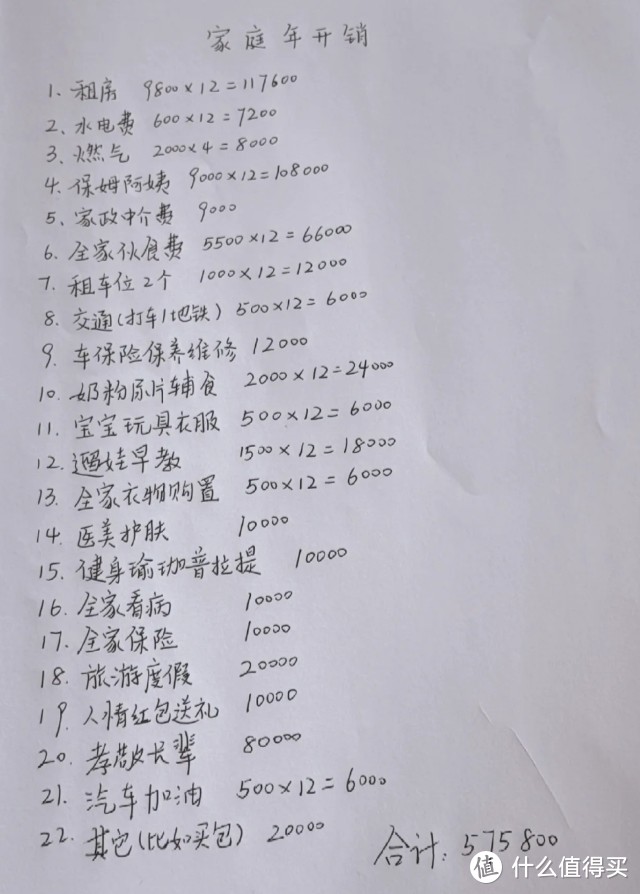 家庭年开销
1、租房 9800×12=117600
2、水电费 600×12=7200
3、燃气 2000×4=8000
4、保姆阿姨 9000×12=108000
5、家政中介费 9000
6、全家伙食费 5500×12=66000
7、租车位2个 1000×12=12000
8、交通(打车/地铁) 500×12=6000
9、车保险保养维修 12000
10、奶粉尿片辅食 2000×12=24000
11、宝宝玩具衣服 500×12=6000
12、遛娃早教 1500×12=18000
13、全家衣物购置 500×12=6000
14、医美护肤 10000
15、健身瑜珈普拉提 10000
16、全家看病 10000
17、全家保险 10000
18、旅游度假 20000
19、人情红包送礼 10000
20、孝敬长辈 80000
21、汽车加油 500×12=6000
22、其它(比如买包) 20000
合计:575800
值 什么值得买